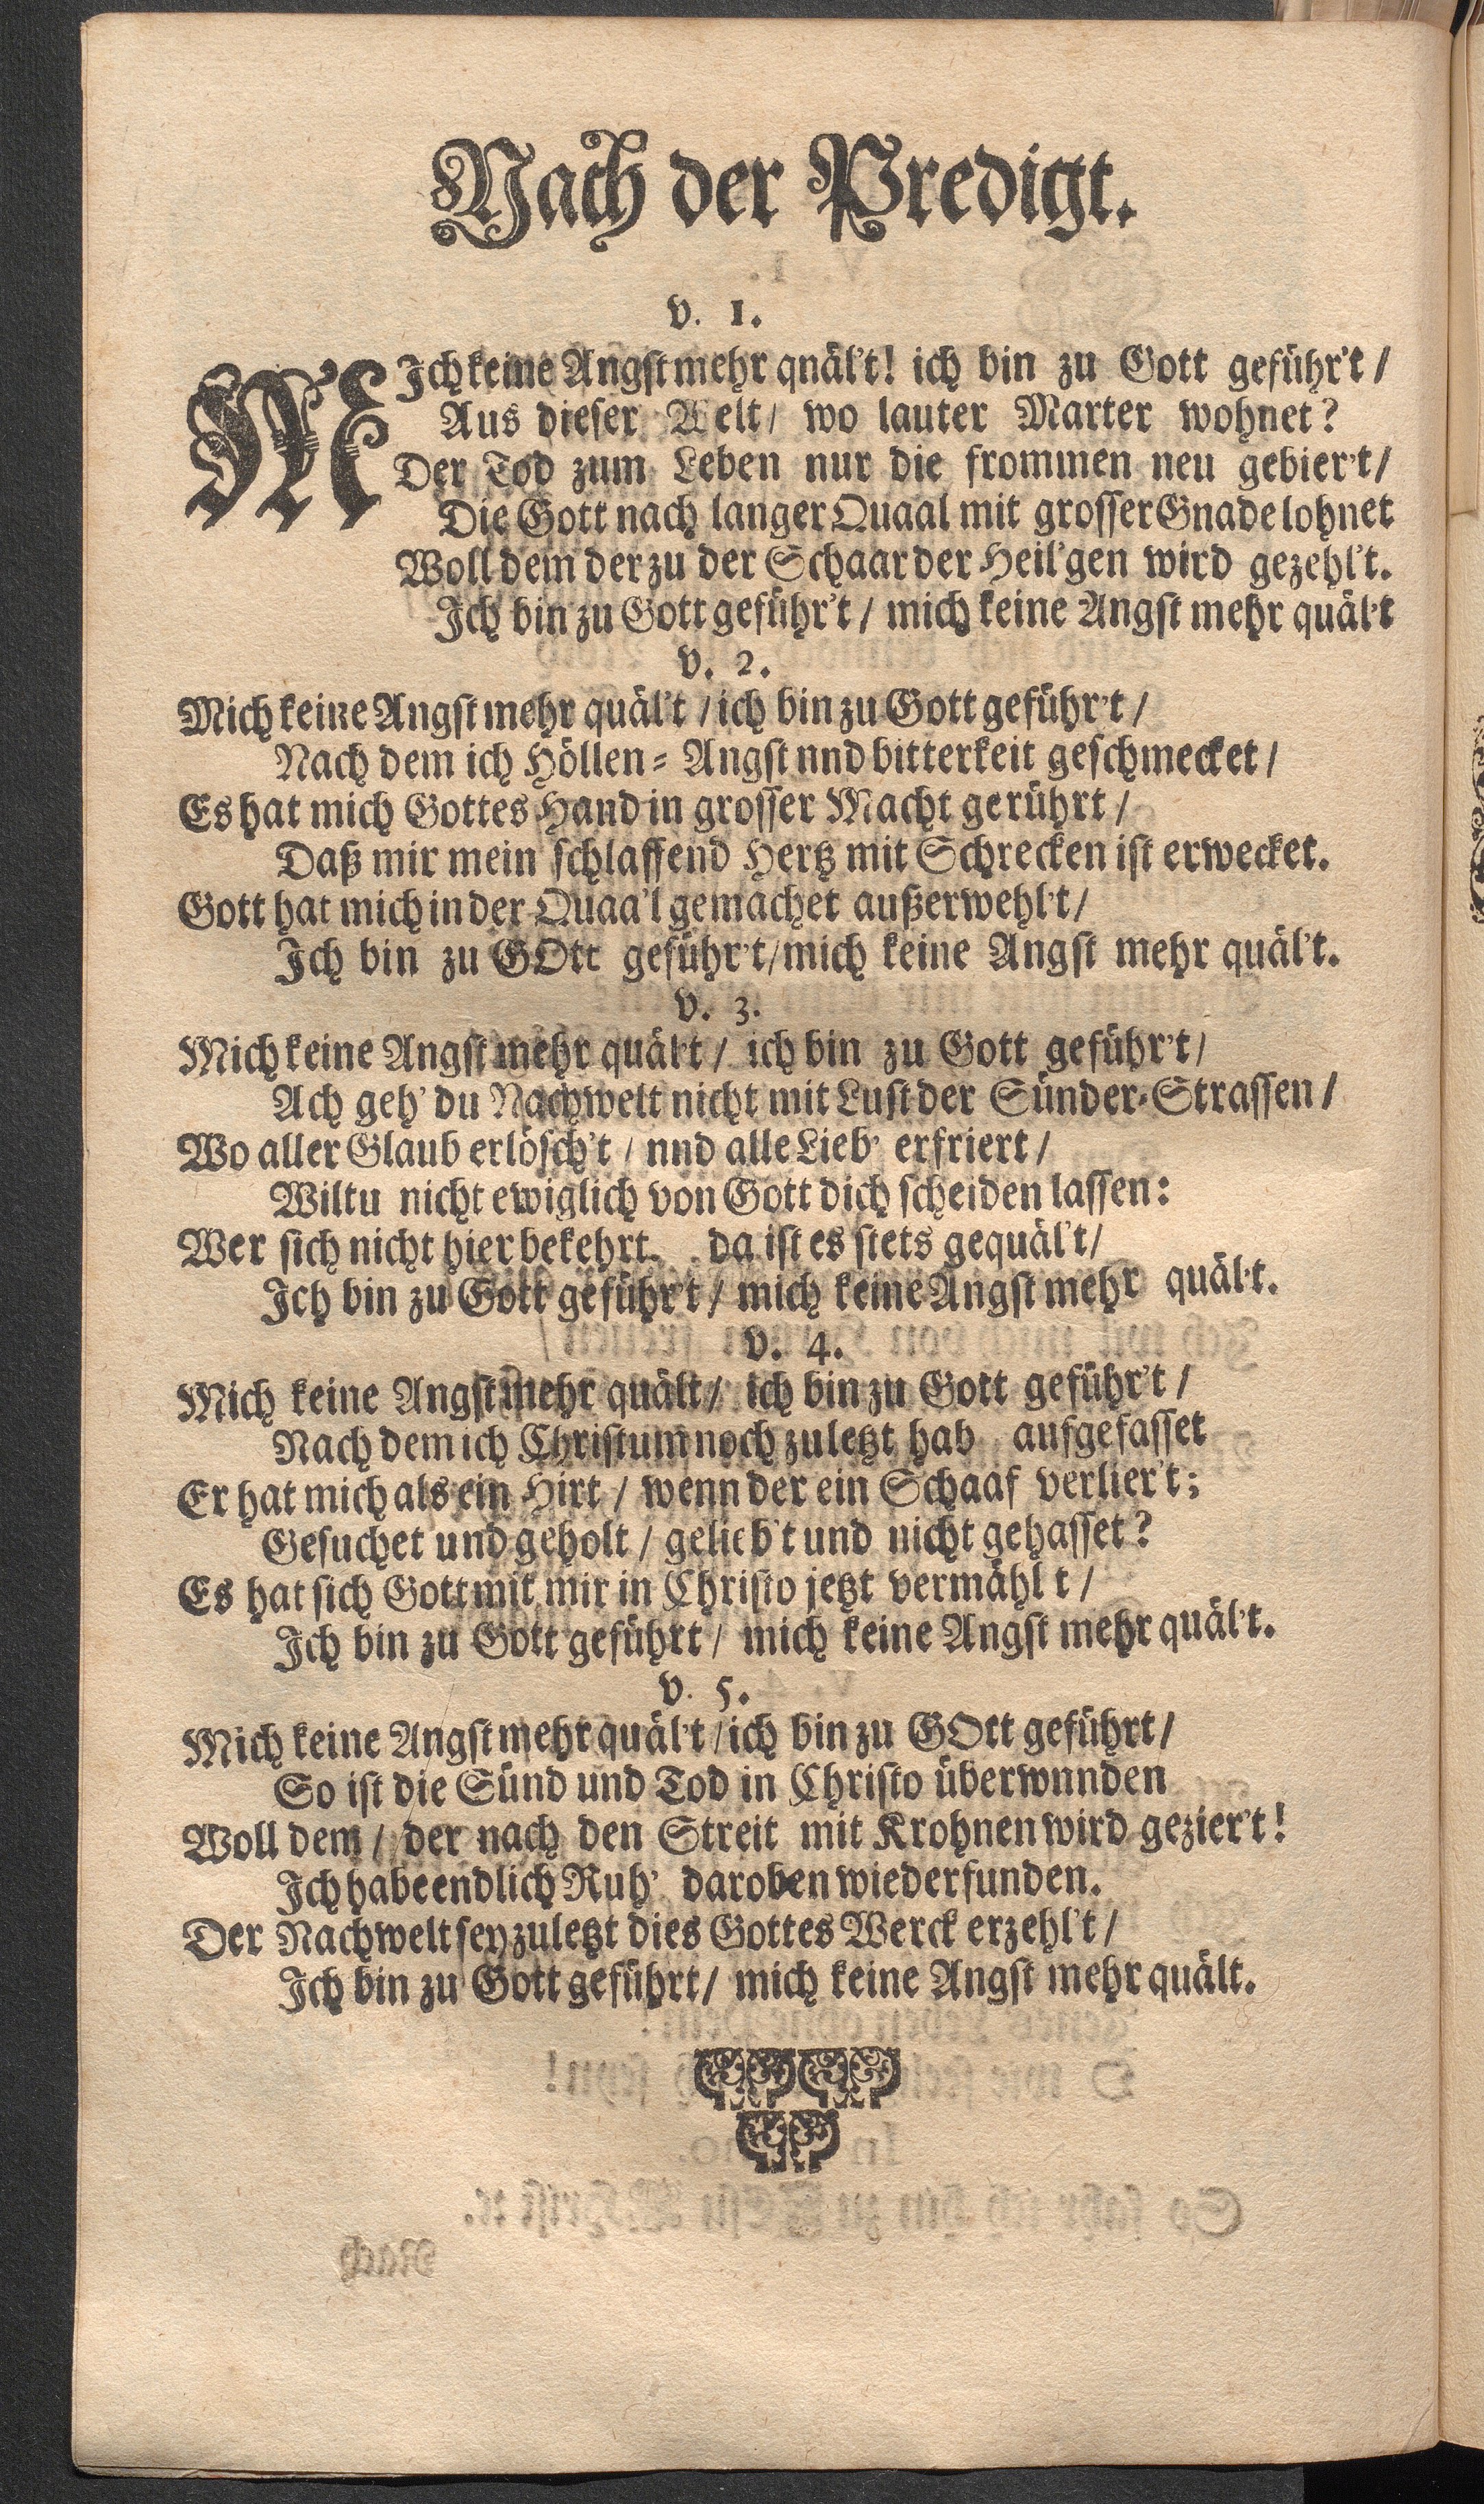 Nach der Predigt.
v. 1.
MIch keine Angst mehr qnäl't! ich bin zu Gott geführ't /
Aus dieser Welt / wo lauter Marter wohnet?
Der Tod zum Leben nur die frommen neu gebier't /
Die Gott nach langer Quaal mit grosser Gnade lohnet
Woll dem der zu der Schaar der Heil'gen wird gezehl't.
Ich bin zu Gott geführ't / mich keine Angst mehr quäl't
v. 2.
Mich keine Angst mehr quäl't / ich bin zu Gott geführ't /
Nach dem ich Höllen- Angst nnd bitterkeit geschmecket /
Es hat mich Gottes Hand in grosser Macht gerührt /
Daß mir mein schlaffend Hertz mit Schrecken ist erwecket.
Gott hat mich in der Quaa'l gemachet außerwehl't /
Ich bin zu GOtt geführ't / mich keine Angst mehr quäl't.
v. 3.
Mich keine Angst mehr quäl't / ich bin zu Gott geführ't /
Ach geh' du Nachwelt nicht mit Lust der Sünder-Strassen /
Wo aller Glaub erlösch't / nnd alle Lieb' erfriert /
Wiltu nicht ewiglich von Gott dich scheiden lassen:
Wer sich nicht hier bekehrt. da ist es stets gequäl't /
Ich bin zu Gott geführ't / mich keine Angst mehr quäl't.
v. 4.
Mich keine Angst mehr quält / ich bin zu Gott geführ't /
Nach dem ich Christum noch zuletzt hab aufgefasset
Er hat mich als ein Hirt / wenn der ein Schaaf verlier't;
Gesuchet und geholt / gelieb't und nicht gehasset?
Es hat sich Gott mit mir in Christo jetzt vermähl t /
Ich bin zu Gott geführt / mich keine Angst mehr quäl't.
v. 5.
Mich keine Angst mehr quäl't / ich bin zu GOtt geführt /
So ist die Sünd und Tod in Christo überwnnden
Woll dem / der nach den Streit mit Krohnen wird gezier't!
Ich habe endlich Ruh' daroben wiederfunden.
Der Nachwelt sey zuletzt dies Gottes Werck erzehl't /
Ich bin zu Gott geführt / mich keine Angst mehr quält.